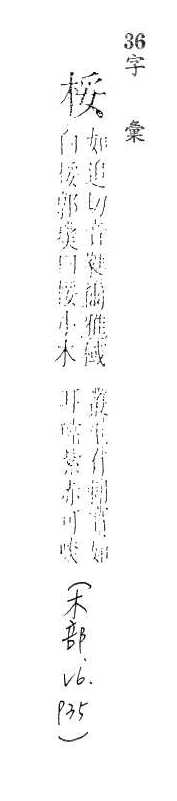 36字　彙
桵
如追切音蕤爾雅棫
白桵郭璞曰桵小木
叢生有刺實如
耳璫紫赤可啖
(木部.V6.P35)